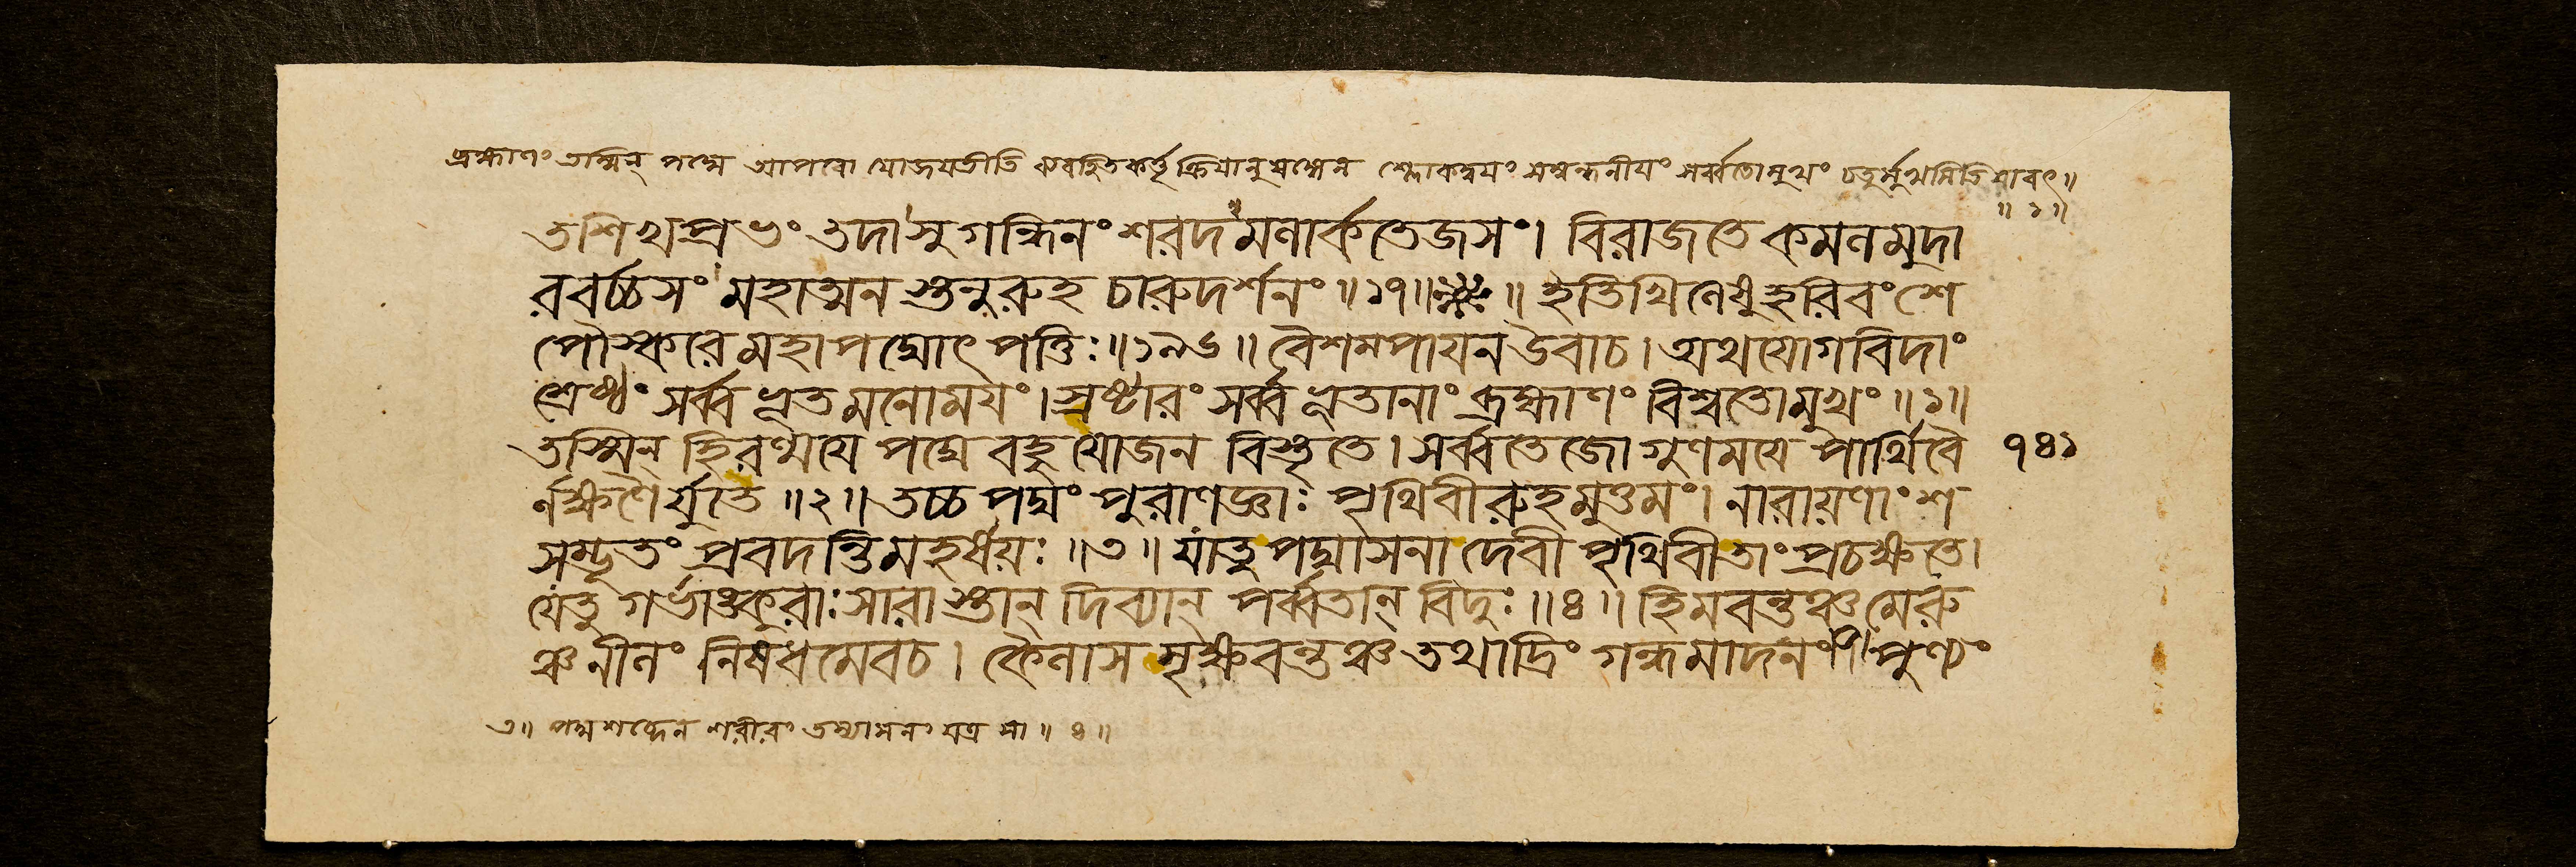 ব্রহ্মাণং তস্মিন্ পদ্মে আপবো যোজয়তীতি ব্যবহিতকর্ত্তৃক্রিয়ানুষঙ্গেন শ্লোকদ্বয়ং সম্বন্ধনীয়ং সর্ব্বতোমুখং চতুর্ম্মুখমিতি যাবৎ॥
॥ ১॥
তশিখপ্রভং তদা সুগন্ধিনং শরদমলার্কতেজসং। বিরাজতে কমলমুদা
রবর্চ্চসং মহাত্মন স্তনুরুহ চারুদর্শনং॥১৭॥ ॥ ইতিখিলেষু হরিবংশে
পৌস্করে মহাপদ্মোৎপত্তিঃ॥১৯৬॥ বৈশম্পায়ন উবাচ। অথ যোগবিদাং
শ্রেষ্ঠং সর্ব্বভূতমনোময়ং। স্রষ্টারং সর্ব্বভূতানাং ব্রহ্মাণং বিশ্বতোমুখং॥১॥
তস্মিন্ হিরণ্ময়ে পদ্মে বহুযোজন বিস্তৃতে। সর্ব্বতেজোগুণময়ে পার্থিবৈ
র্লক্ষণৈর্যুতে॥২॥ তচ্চ পদ্মং পুরাণজ্ঞাঃ পৃথিবীরুহমুত্তমং। নারায়ণাংশ
সম্ভূতং প্রবদন্তি মহর্ষয়ঃ॥৩॥ যাতু পদ্মাসনা দেবী পৃথিবীতাং প্রচক্ষতে।
যেতু গর্ভাঙ্কুরাঃ সারাস্তান্ দিব্যান্ পর্ব্বতান্ বিদুঃ॥৪॥ হিমবন্তঞ্চ মেরু
ঞ্চ নীলং নিষধমেবচ। কৈলাস মৃক্ষবন্তঞ্চ তথাদ্রিং গন্ধমাদনং। পুণ্যং
৭৪১
৩॥ পদ্মশব্দেন শরীরং তস্যাসনং যত্র সা॥ ৪॥